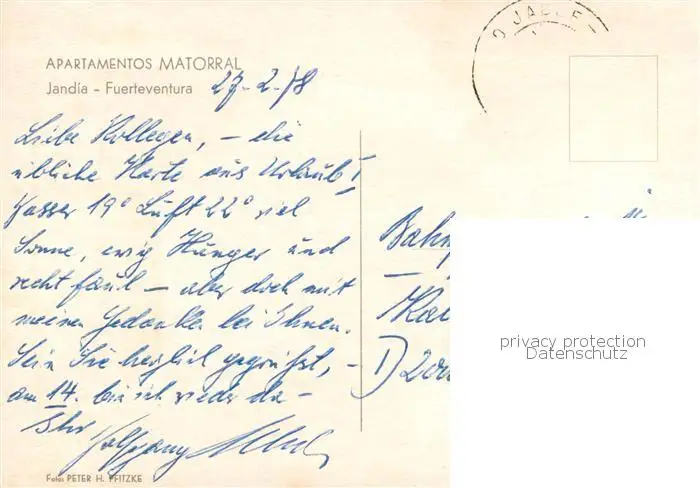 JABLE
APARTAMENTOS MATORRAL
Jandía - Fuerteventura
27.2.78
Liebe Kollegen, - die
übliche Karte aus Urlaub!
Wasser 19° Luft 22° viel
Sonne, ewig Hunger und
recht faul - aber doch mit
meinen Gedanken bei Ihnen.
Sein Sie herzlich gegrüßt, -
am 14. bin ich wieder da -
Ihr Wolfgang
Foto: PETER H. PFITZKE
privacy protection
Datenschutz